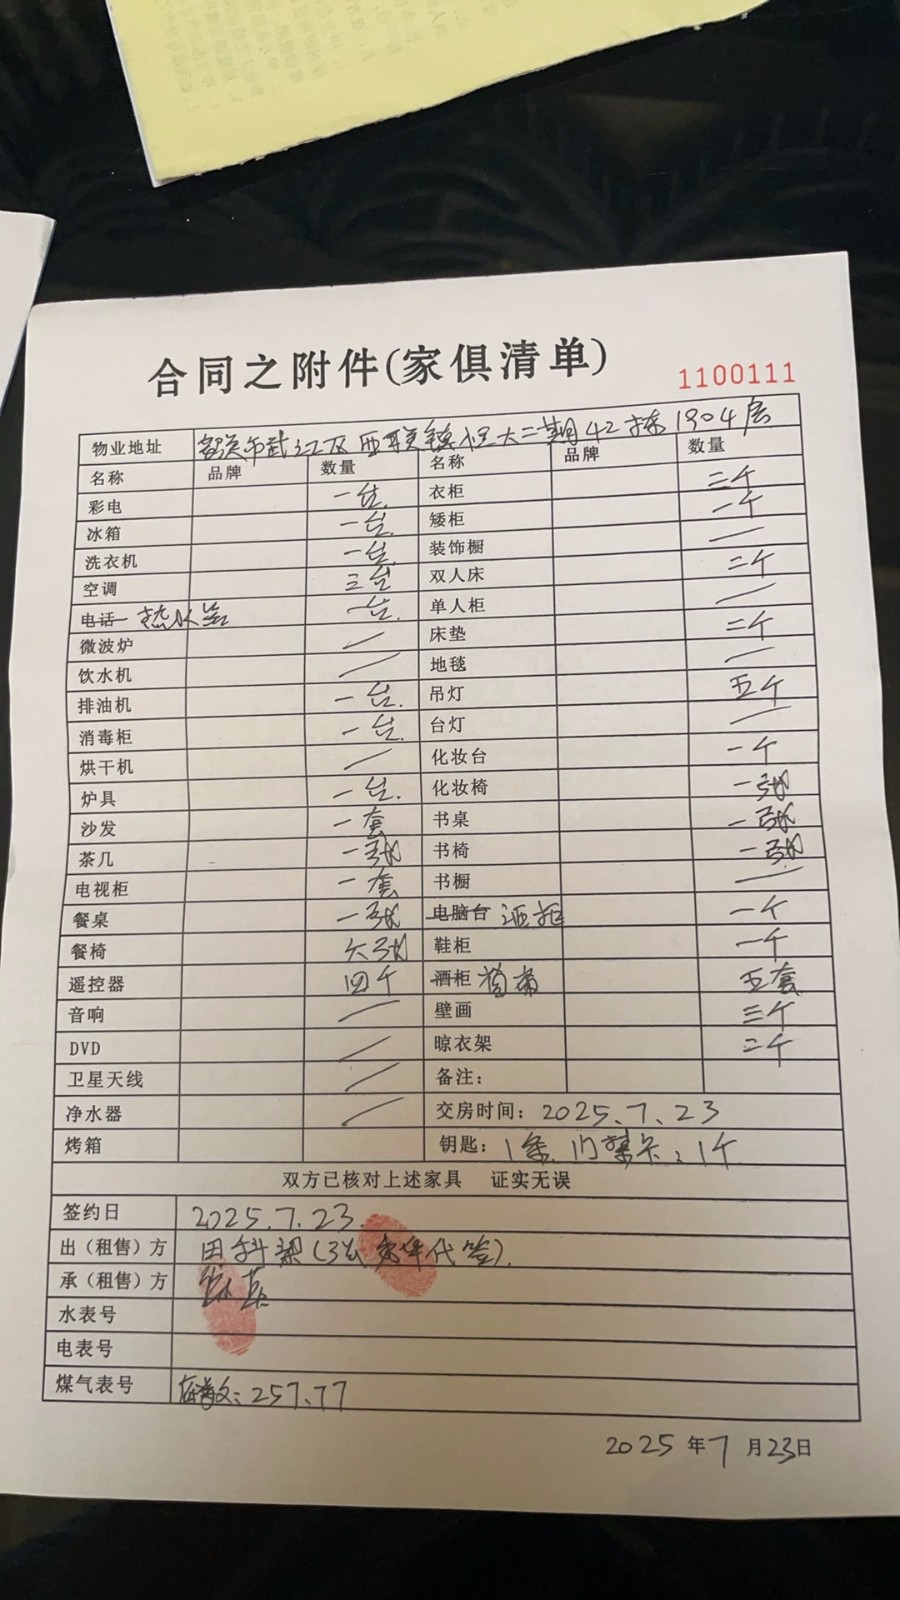 合同之附件(家俱清单)
1100111
物业地址 韶关市武江区西联镇恒大二期42栋1904房
名称 品牌 数量 名称 品牌 数量
彩电 一台 衣柜 三个
冰箱 一台 矮柜 一个
洗衣机 一台 装饰橱 /
空调 三台 双人床 二个
电话 热水器 一台 单人柜 /
微波炉 / 床垫 二个
饮水机 / 地毯 /
排油机 一台 吊灯 五个
消毒柜 一台 台灯 /
烘干机 / 化妆台 一个
炉具 一台 化妆椅 一张
沙发 一套 书桌 一张
茶几 一张 书椅 一张
电视柜 一套 书橱 /
餐桌 一张 电脑台 酒柜 一个
餐椅 六张 鞋柜 一个
遥控器 四个 酒柜 窗帘 五套
音响 / 壁画 三个
DVD / 晾衣架 二个
卫星天线 / 备注:
净水器 / 交房时间: 2025.7.23
烤箱 钥匙: 1条、门禁卡: 1个
双方已核对上述家具 证实无误
签约日 2025.7.23
出（租售）方 田科梁 代签).
承（租售）方
水表号
电表号
煤气表号 257.77
2025 年 7 月 23 日